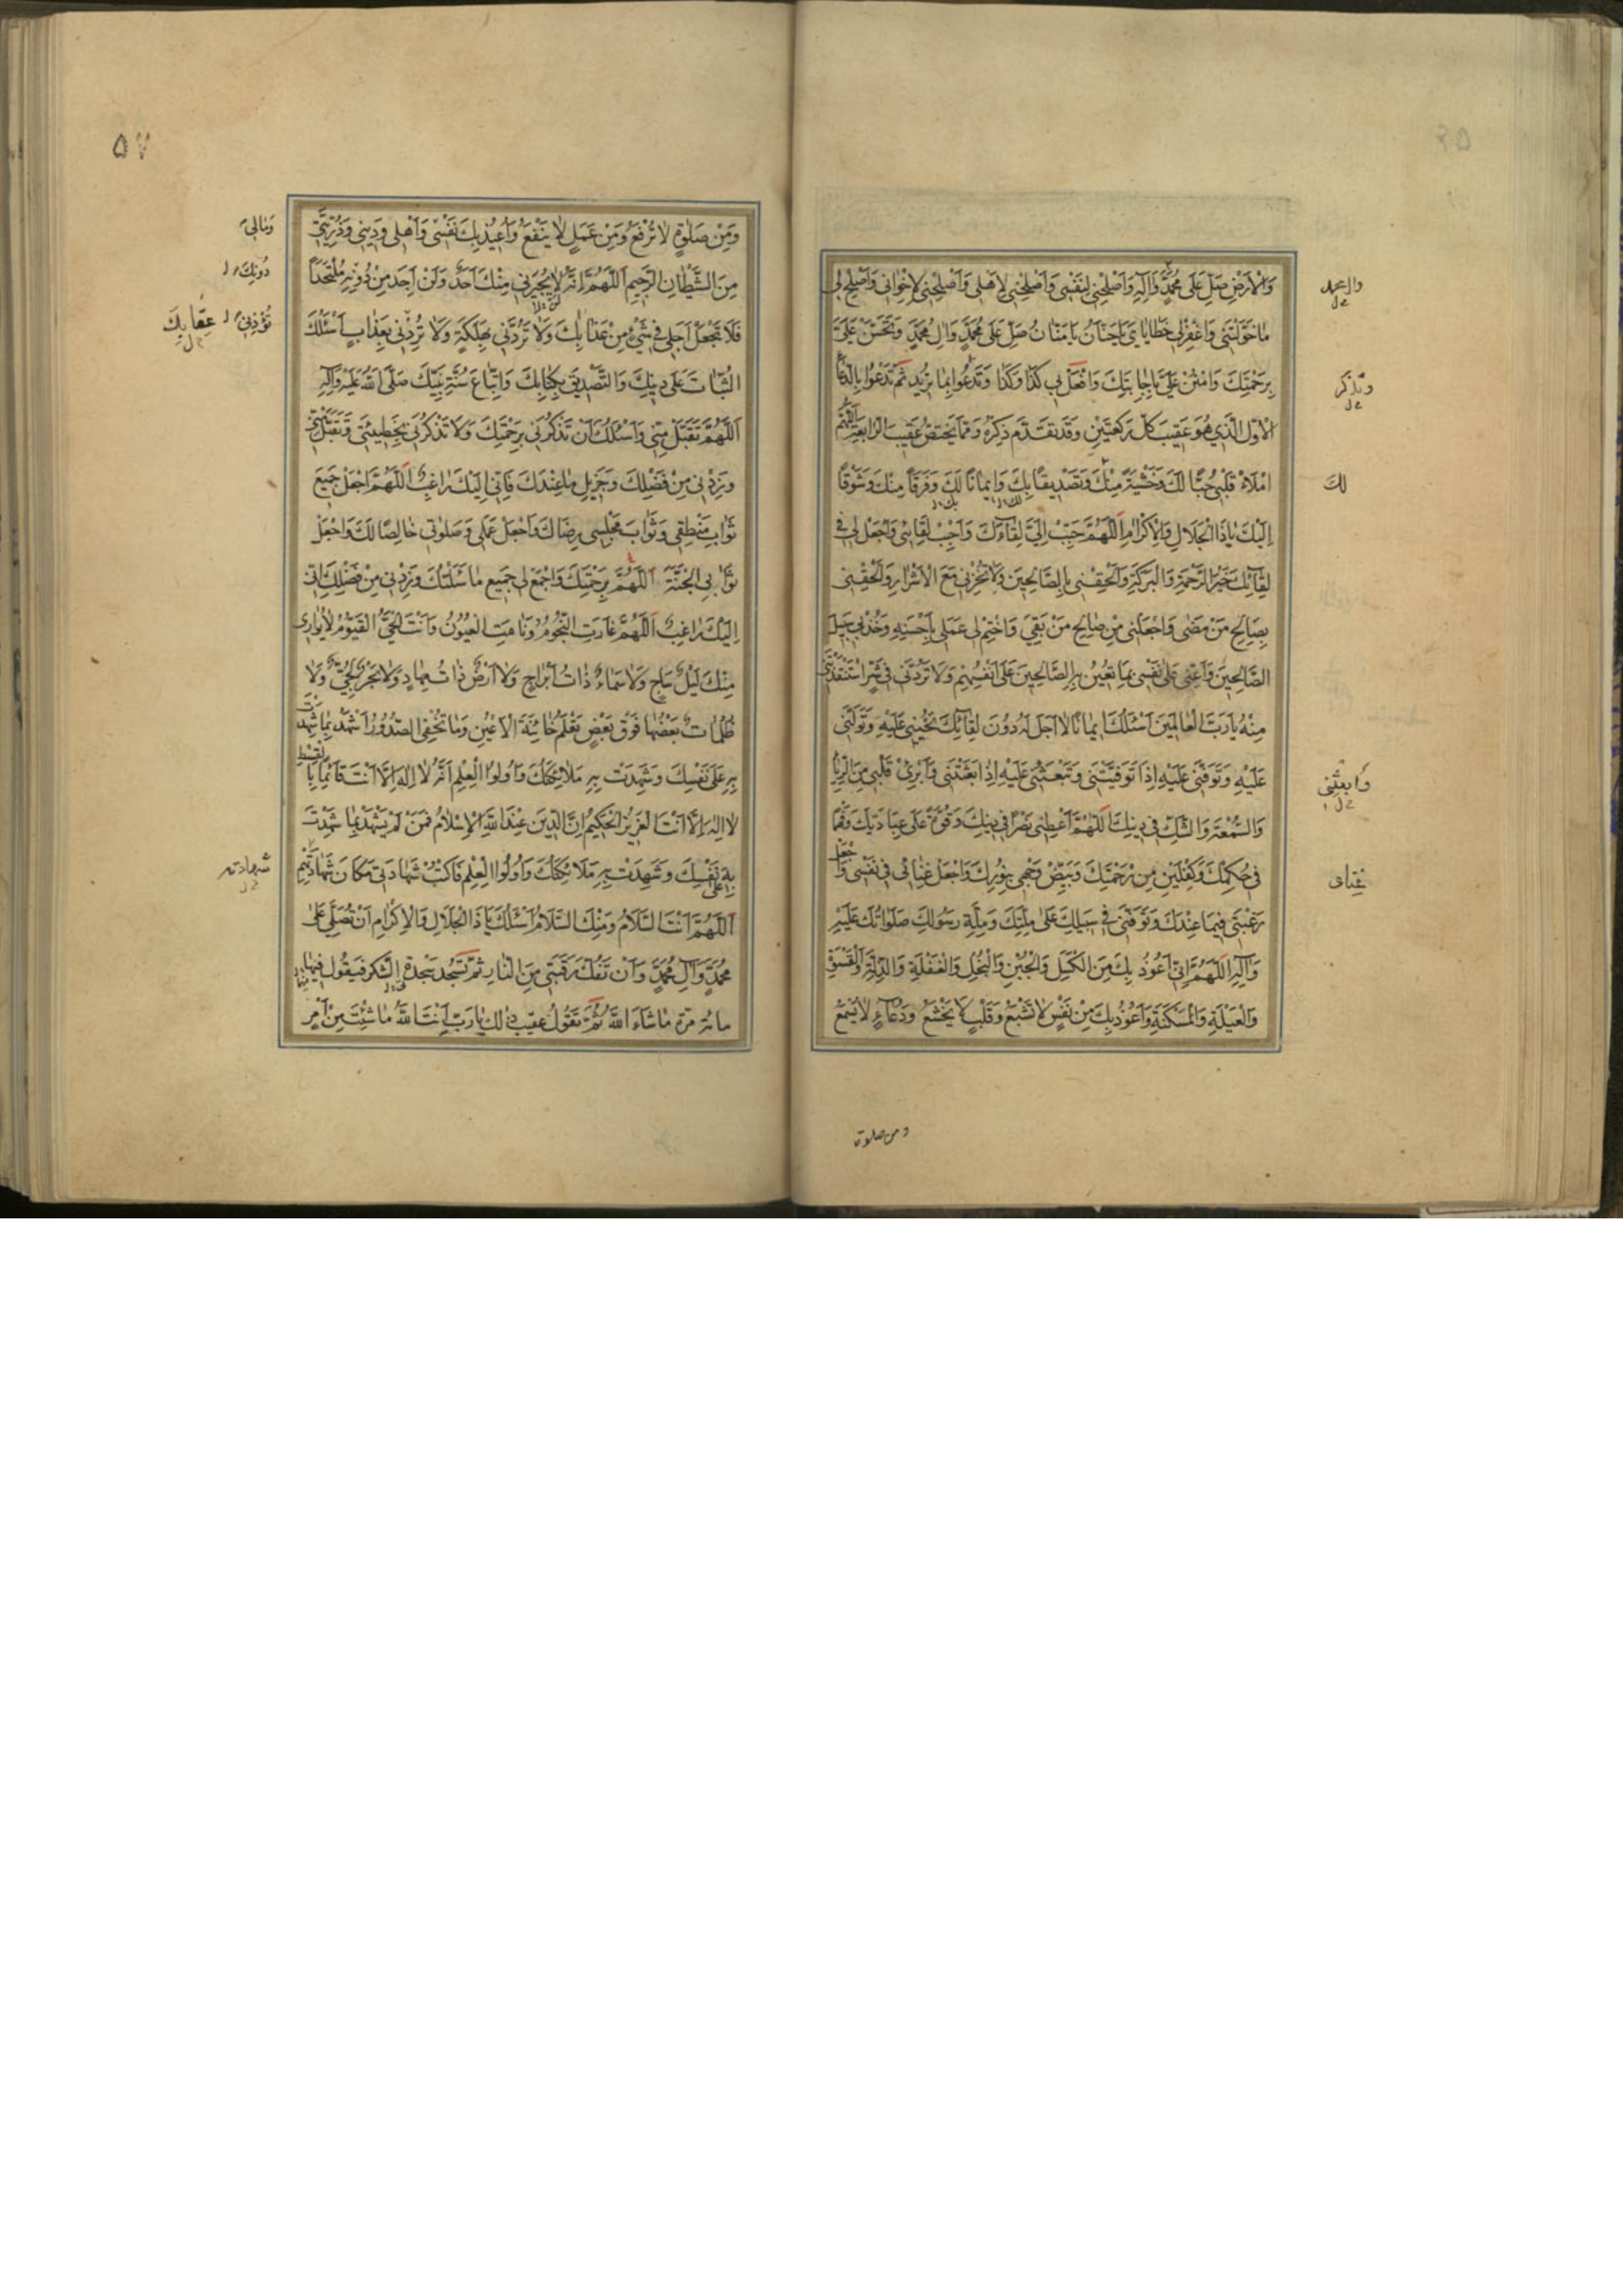 وَالْاَرْضِ صَلِّ عَلٰى مُحَمَّدٍ وَاٰلِهِ وَاَصْلِحْنِى لِنَفْسِى وَاَصْلِحْنِى لِاَهْلِى وَاَصْلِحْنِى لِاِخْوَانِى وَاَصْلِحْ لِى
وال محمد
مَا خَوَّلْتَنِى وَاغْفِرْ لِى خَطَايَاىَ يَا حَنَّانُ يَا مَنَّانُ صَلِّ عَلٰى مُحَمَّدٍ وَاٰلِ مُحَمَّدٍ وَتَحَنَّنْ عَلَىَّ
بِرَحْمَتِكَ وَامْنُنْ عَلَىَّ بِاِجَابَتِكَ وَافْعَلْ بِى كَذَا وَكَذَا وَتَدْعُوا بِمَا تُرِيدُ ثُمَّ تَدْعُوا بِالدُّعَاءِ
وتذكر
الْاَوَّلِ الَّذِى هُوَ عَقِيبَ كُلِّ رَكْعَتَيْنِ وَقَدْ تَقَدَّمَ ذِكْرُهُ وَمِمَّا يَخْتَصُّ عَقِيبَ الرَّابِعَةِ اَللّٰهُمَّ
امْلَاْ قَلْبِى حُبًّا لَكَ وَخَشْيَةً مِنْكَ وَتَصْدِيقًا بِكَ وَاِيمَانًا لَكَ وَفَرَقًا مِنْكَ وَشَوْقًا
لَكَ
اِلَيْكَ يَا ذَا الْجَلَالِ وَالْاِكْرَامِ اَللّٰهُمَّ حَبِّبْ اِلَىَّ لِقَاءَكَ وَاَحْبِبْ لِقَائِى وَاجْعَلْ لِى فِى
لِقَائِكَ خَيْرَ الرَّحْمَةِ وَالْبَرَكَةِ وَاَلْحِقْنِى بِالصَّالِحِينَ وَلَا تُخْزِنِى مَعَ الْاَشْرَارِ وَاَلْحِقْنِى
بِصَالِحِ مَنْ مَضٰى وَاجْعَلْنِى مِنْ صَالِحِ مَنْ بَقِىَ وَاخْتِمْ لِى عَمَلِى بِاَحْسَنِهِ وَخُذْ بِى سَبِيلَ
الصَّالِحِينَ وَاَعِنِّى عَلٰى نَفْسِى بِمَا تُعِينُ بِهِ الصَّالِحِينَ عَلٰى اَنْفُسِهِمْ وَلَا تَرُدَّنِى فِى شَرٍّ اسْتَنْقَذْتَنِى
مِنْهُ يَا رَبَّ الْعَالَمِينَ اَسْئَلُكَ اِيمَانًا لَا اَجَلَ لَهُ دُونَ لِقَائِكَ تُحْيِينِى عَلَيْهِ وَتَوَلَّنِى
عَلَيْهِ وَتَوَفَّنِى عَلَيْهِ اِذَا تَوَفَّيْتَنِى وَتَبْعَثُنِى عَلَيْهِ اِذَا بَعَثْتَنِى وَاَبْرِئْ قَلْبِى مِنَ الرِّيَاءِ
وَابعَثنِى
وَالسُّمْعَةِ وَالشَّكِّ فِى دِينِكَ اَللّٰهُمَّ اَعْطِنِى نَصْرًا فِى دِينِكَ وَقُوَّةً عَلٰى عِبَادَتِكَ وَفَهْمًا
فِى حُكْمِكَ وَكِفْلَيْنِ مِنْ رَحْمَتِكَ وَبَيِّضْ وَجْهِى بِنُورِكَ وَاجْعَلْ غِنَائِى فِى نَفْسِى وَاجْعَلْ
رَغْبَتِى فِيمَا عِنْدَكَ وَتَوَفَّنِى فِى سَبِيلِكَ عَلٰى مِلَّتِكَ وَمِلَّةِ رَسُولِكَ صَلَوَاتُكَ عَلَيْهِ
وَاٰلِهِ اَللّٰهُمَّ اِنِّى اَعُوذُ بِكَ مِنَ الْكَسَلِ وَالْجُبْنِ وَالْبُخْلِ وَالْغَفْلَةِ وَالذِّلَّةِ وَالْقَسْوَةِ
وَالْعَيْلَةِ وَالْمَسْكَنَةِ وَاَعُوذُ بِكَ مِنْ نَفْسٍ لَا تَشْبَعُ وَقَلْبٍ لَا يَخْشَعُ وَدُعَاءٍ لَا يُسْمَعُ
ومن صلوة
۵۷
وَمِنْ صَلٰوةٍ لَا تُرْفَعُ وَمِنْ عَمَلٍ لَا يَنْفَعُ وَاُعِيذُ بِكَ نَفْسِى وَاَهْلِى وَدِينِى وَذُرِّيَّتِى
وَمَالِى
مِنَ الشَّيْطَانِ الرَّجِيمِ اَللّٰهُمَّ اِنَّهُ لَا يُجِيرُنِى مِنْكَ اَحَدٌ وَلَنْ اَجِدَ مِنْ دُونِهِ مُلْتَحَدًا
دُونِكَ
فَلَا تَجْعَلْ اَجَلِى فِى شَىْءٍ مِنْ عَذَابِكَ وَلَا تَرُدَّنِى بِهَلَكَةٍ وَلَا تُرِدْنِى بِعَذَابٍ اَسْئَلُكَ
عِقَابِكَ
الثَّبَاتَ عَلٰى دِينِكَ وَالتَّصْدِيقَ بِكِتَابِكَ وَاتِّبَاعَ سُنَّةِ نَبِيِّكَ صَلَّى اللّٰهُ عَلَيْهِ وَاٰلِهِ
اَللّٰهُمَّ تَقَبَّلْ مِنِّى وَاَسْئَلُكَ اَنْ تَذْكُرَنِى بِرَحْمَتِكَ وَلَا تَذْكُرَنِى بِخَطِيئَتِى وَتَقَبَّلْ مِنِّى
وَزِدْنِى مِنْ فَضْلِكَ وَجَزِيلِ مَا عِنْدَكَ فَاِنِّى اِلَيْكَ رَاغِبٌ اَللّٰهُمَّ اجْعَلْ جَمِيعَ
ثَوَابِ مَنْطِقِى وَثَوَابَ مَجْلِسِى رِضَاكَ وَاجْعَلْ عَمَلِى وَصَلٰوتِى خَالِصًا لَكَ وَاجْعَلْ
ثَوَابِى الْجَنَّةَ اَللّٰهُمَّ بِرَحْمَتِكَ وَاجْمَعْ لِى جَمِيعَ مَا سَئَلْتُكَ وَزِدْنِى مِنْ فَضْلِكَ اِنِّى
اِلَيْكَ رَاغِبٌ اَللّٰهُمَّ غَارَتِ النُّجُومُ وَنَامَتِ الْعُيُونُ وَاَنْتَ الْحَىُّ الْقَيُّومُ لَا يُوَارِى
مِنْكَ لَيْلٌ سَاجٍ وَلَا سَمَاءٌ ذَاتُ اَبْرَاجٍ وَلَا اَرْضٌ ذَاتُ مِهَادٍ وَلَا بَحْرٌ لُجِّىٌّ وَلَا
ظُلُمَاتٌ بَعْضُهَا فَوْقَ بَعْضٍ تَعْلَمُ خَائِنَةَ الْاَعْيُنِ وَمَا تُخْفِى الصُّدُورُ اَشْهَدُ بِمَا شَهِدْتَ
بِهِ عَلٰى نَفْسِكَ وَشَهِدَتْ بِهِ مَلَائِكَتُكَ وَاُولُوا الْعِلْمِ اَنَّهُ لَا اِلٰهَ اِلَّا اَنْتَ قَائِمًا بِالْقِسْطِ
لَا اِلٰهَ اِلَّا اَنْتَ الْعَزِيزُ الْحَكِيمُ اِنَّ الدِّينَ عِنْدَ اللّٰهِ الْاِسْلَامُ فَمَنْ لَمْ يَشْهَدْ بِمَا شَهِدْتَ
بِهِ عَلٰى نَفْسِكَ وَشَهِدَتْ بِهِ مَلَائِكَتُكَ وَاُولُوا الْعِلْمِ فَاكْتُبْ شَهَادَتِى مَكَانَ شَهَادَتِهِمْ
شهادته
اَللّٰهُمَّ اَنْتَ السَّلَامُ وَمِنْكَ السَّلَامُ اَسْئَلُكَ يَا ذَا الْجَلَالِ وَالْاِكْرَامِ اَنْ تُصَلِّىَ عَلٰى
مُحَمَّدٍ وَاٰلِ مُحَمَّدٍ وَاَنْ تَفُكَّ رَقَبَتِى مِنَ النَّارِ ثُمَّ تَسْجُدُ سَجْدَةَ الشُّكْرِ فَيَقُولُ فِيهَا
مائة مرّة مَا شَاءَ اللّٰهُ ثُمَّ تَقُولُ عَقِيبَ ذٰلِكَ يَا رَبِّ اَنْتَ اللّٰهُ مَا شِئْتَ مِنْ اَمْرٍ